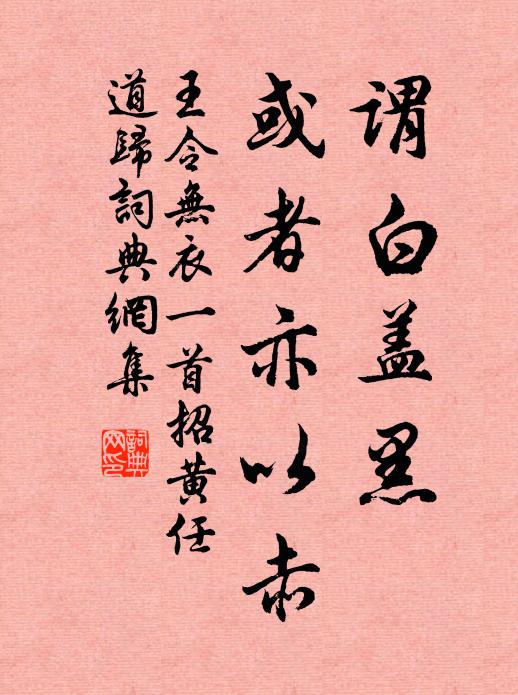 謂白盖黑
或者亦以赤
王令無衣一首招黄任
道歸詞典網集
詞典網印